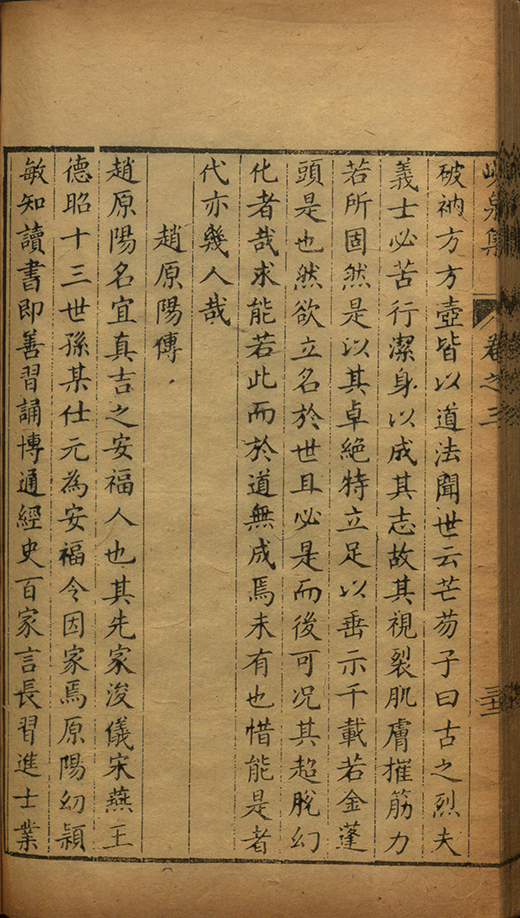 峴泉集 卷之三
破衲方方壺皆以道法聞世云芒芴子曰古之烈夫
義士必苦行潔身以成其志故其視裂肌膚摧筋力
若所固然是以其卓絶特立足以垂示千載若金蓬
頭是也然欲立名於世且必是而後可况其超脫幻
化者哉求能若此而於道無成焉未有也惜能是者
代亦幾人哉
趙原陽傳
趙原陽名宜真吉之安福人也其先家浚儀宋燕王
德昭十三世孫某仕元為安福令因家焉原陽幼穎
敏知讀書即善習誦博通經史百家言長習進士業